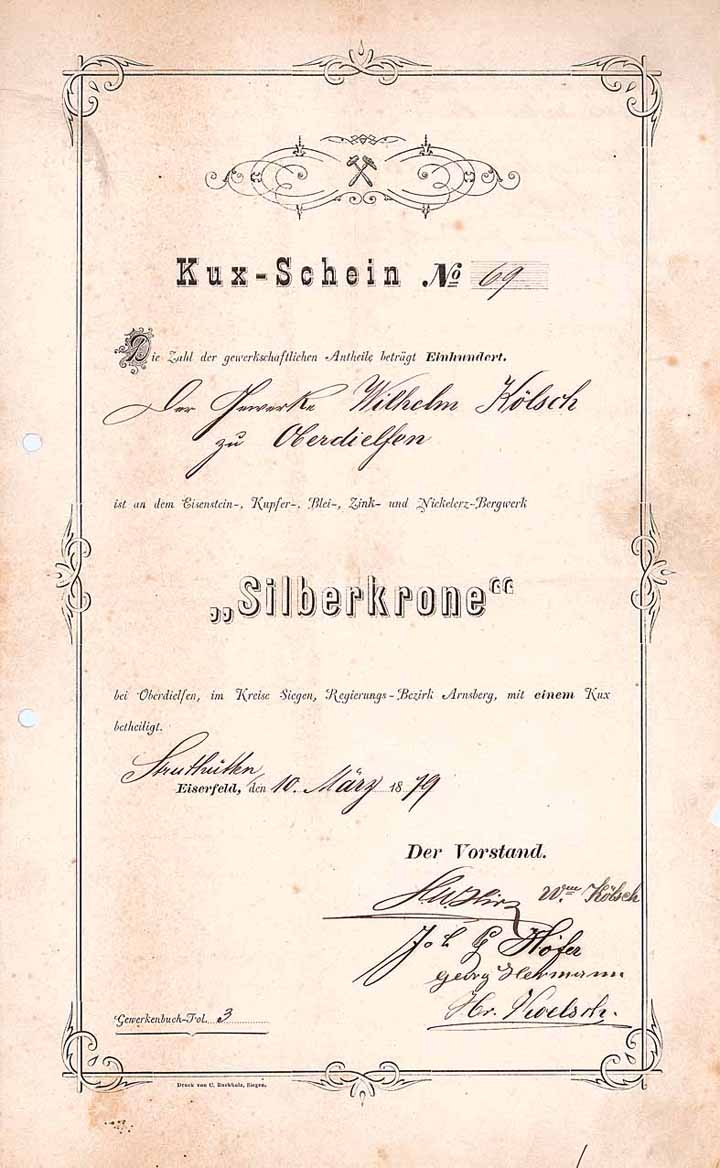 Kux-Schein No 69
Die Zahl der gewerkschaftlichen Antheile beträgt Einhundert.
Der Gewerke Wilhelm Kölsch
zu Oberdielfen
ist an dem Eisenstein-, Kupfer-, Blei-, Zink- und Nickelerz-Bergwerk
„Silberkrone“
bei Oberdielfen, im Kreise Siegen, Regierungs-Bezirk Arnsberg, mit einem Kux
betheiligt.
Struthütten
Eiserfeld, den 10. März 1879
Der Vorstand.
Wm Kölsch
Joh G Höfer
Georg Hermann
Hr.
Gewerkenbuch-Fol. 3
Druck von C. Buchholz, Siegen.